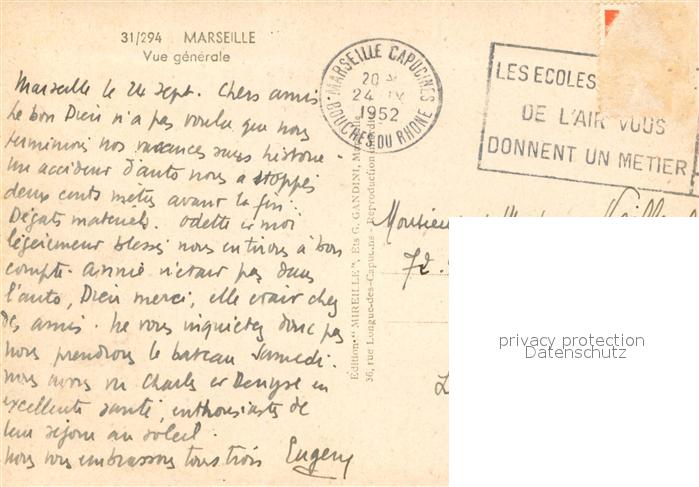 31/294 MARSEILLE
Vue générale
MARSEILLE CAPUCINES
20 H
24 IX
1952
BOUCHES DU RHONE
LES ECOLES
DE L'AIR VOUS
DONNENT UN METIER
Marseille le 24 sept. Chers amis
Le bon Dieu n'a pas voulu que nous
terminions nos vacances sans histoire.
Un accident d'auto nous a stoppés
deux cents mètres avant la fin.
Dégats matériels. Odette et moi
légèrement blessés nous en tirons à bon
compte. Annie n'était pas dans
l'auto, Dieu merci, elle était chez
des amis. Ne vous inquiétez donc pas
nous prendrons le bateau Samedi.
nous avons vu Charles et Denyse en
excellente santé, enthousiastes de
leur séjour au soleil.
Nous vous embrassons tous trois Eugène
Edition "MIREILLE", Ets G. GANDINI, Marseille
36, rue Longue-des-Capucins - Reproduction interdite
Monsieur
72.
privacy protection
Datenschutz